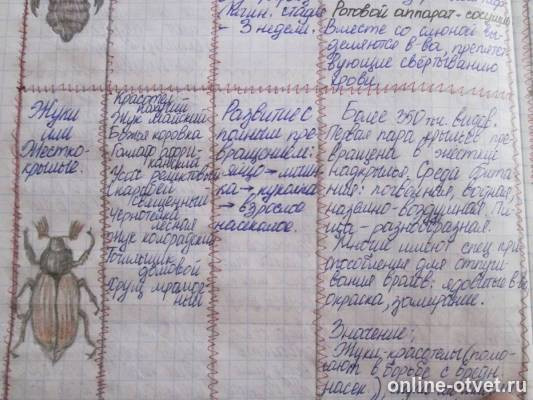 Личин. стадия
- 3 недели.
Ротовой аппарат - сосущий
Вместе со слюной вы-
деляются в-ва, препятст-
вующие свёртыванию
крови.
Жуки
или
Жестко-
крылые.
Красотел
пахучий
Жук майский
Божья коровка
Голиаф афри-
канский
Усач реликтовый
Скарабей -
священный
чернотелка
лесная
Жук колорадский
Точильщик
домовой
Хрущ мрамор-
ный
Развитие с
полным пре-
вращением:
яйцо → личин-
ка → куколка
→ взрослое
насекомое.
Более 350 тыс. видов.
Первая пара крыльев пре-
вращена в жесткие
надкрылья. Среда обита-
ния: почвенная, водная,
наземно-воздушная. Пи-
ща - разнообразная.
Многие имеют спец. при-
способления для отпуги-
вания врагов: ядовитые в-ва
окраска, замирание.
Значение:
Жуки-красотелы (помо-
гают в борьбе с вредн.
насек.),
online-otvet.ru